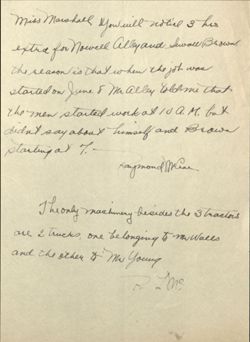 Miss Marshall You will notice 3 hrs
extra for Nowell Alley and Brown
the reason is that when the job was
started on June 8 Mr Alley told me that
the men started work at 10 A.M. but
didn't say about himself and Brown
starting at 7. —
Raymond
The only machinery besides the 3 tractors
are 2 trucks, one belonging to Mr Walls
and the other to Mr Young